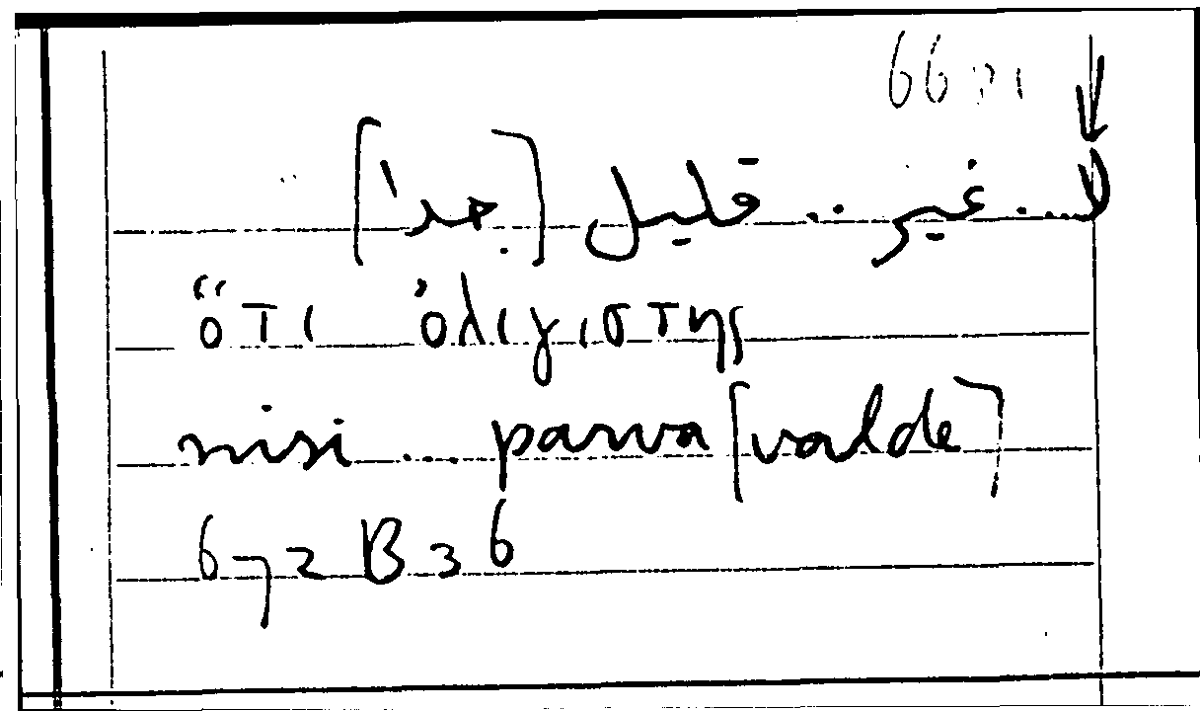 66
لا ... غير .. قليل [جداً]
ὅτι ὀλιγιστης
nisi ... parva [valde]
672 B 36